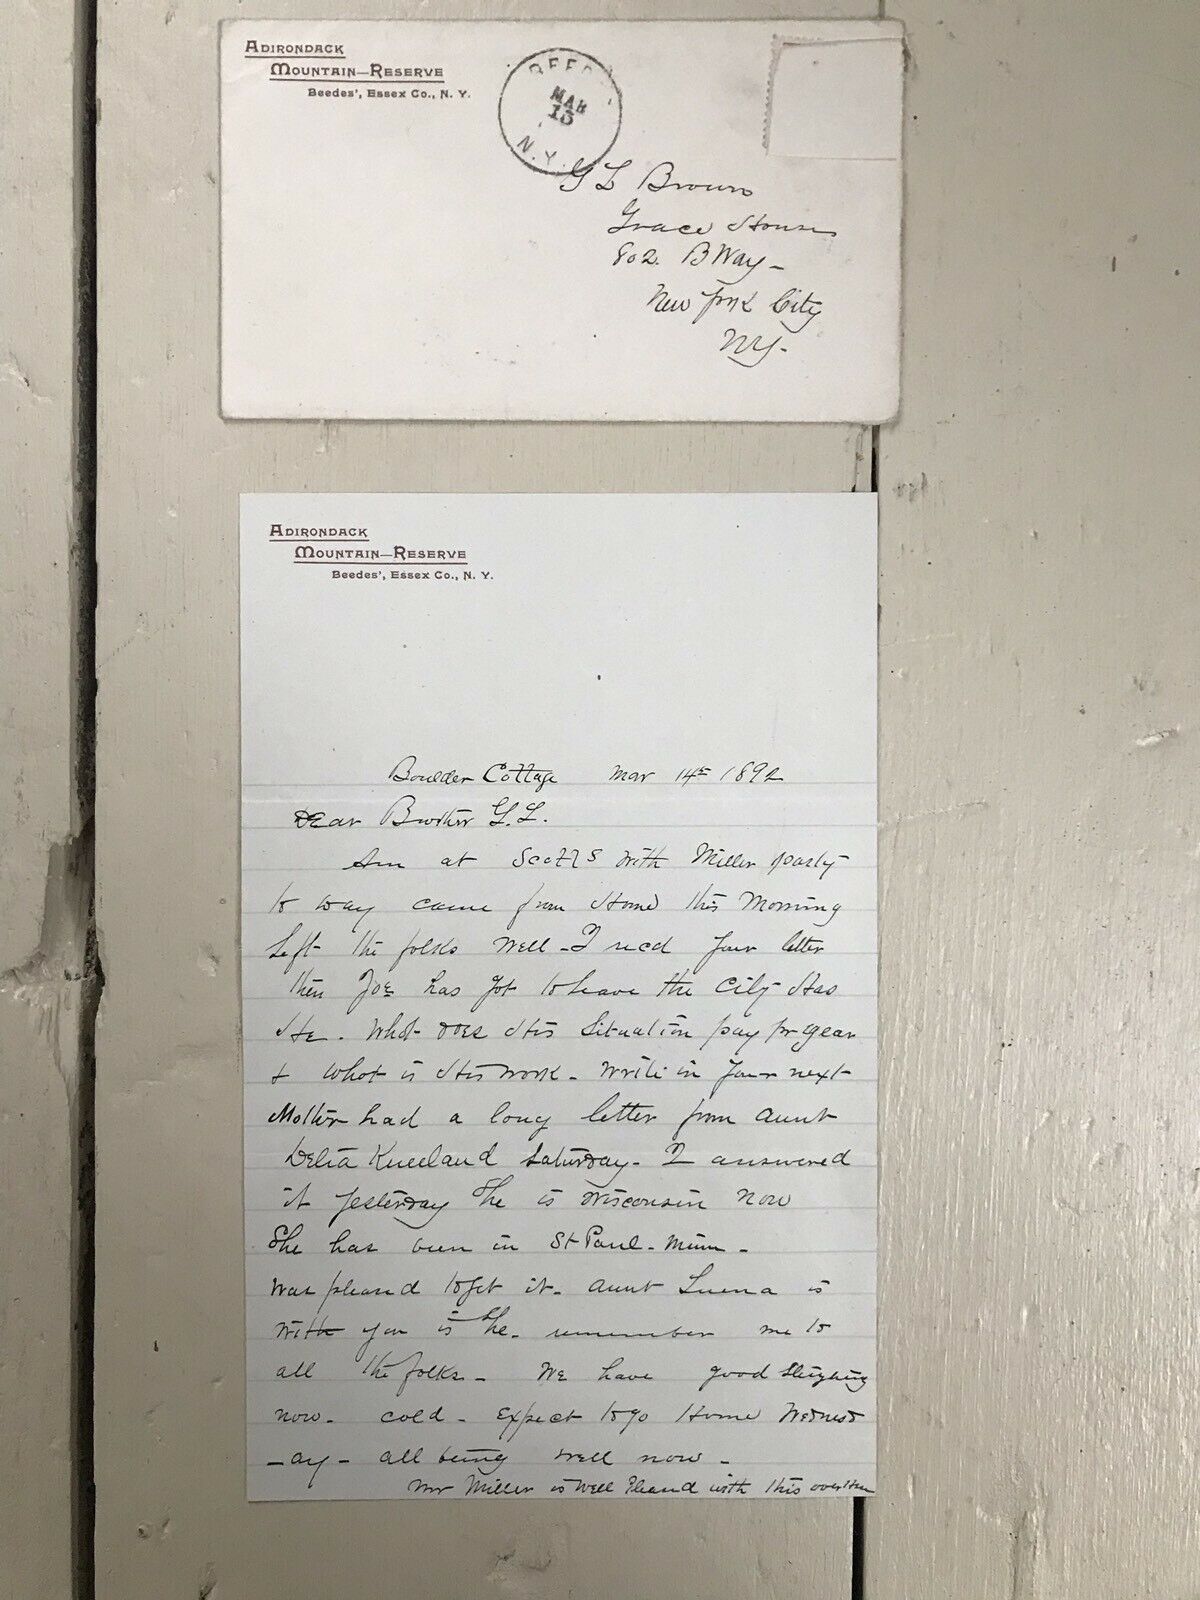 ADIRONDACK
MOUNTAIN—RESERVE
Beedes', Essex Co., N. Y.
BEEDE
MAR
15
N.Y.
G L Brown
Grace House
802 BWay-
New York City
NY-
ADIRONDACK
MOUNTAIN—RESERVE
Beedes', Essex Co., N. Y.
Boulder Cottage Mar 14th 1892
Dear Brother G.L.
Am at Scotts with Miller party
to day came from Home this Morning
Left the folks Well - I recd your letter
then Joe has got to leave the City Has
He. What does His Situation pay pr year
+ what is His work - write in Your next
Mother had a long letter from aunt
Delia Kneeland Saturday - I answered
it yesterday She is Wisconsin Now
She has been in St Paul - Minn -
Was pleased to get it - aunt Luena is
with you is She - remember me to
all the folks - We have good Sleighing
now - cold - Expect to go Home Wednesd
-ay - all being well now -
Mr Miller is Well Pleased with this over Here